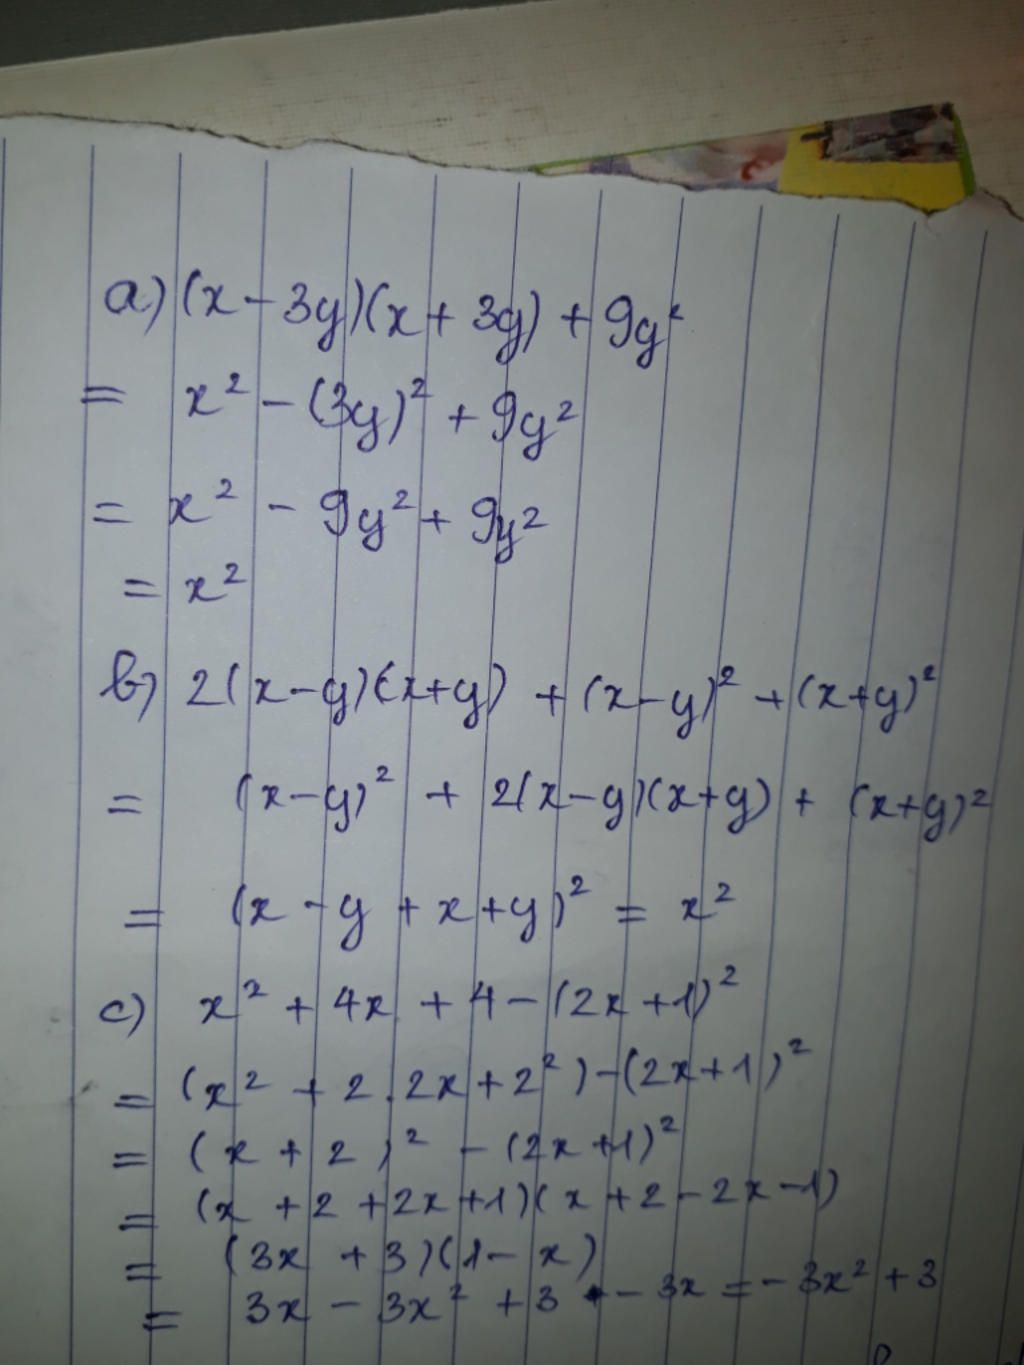 a) (x - 3y)(x + 3y) + 9y²
= x² - (3y)² + 9y²
= x² - 9y² + 9y²
= x²
b) 2(x-y)(x+y) + (x-y)² + (x+y)²
= (x-y)² + 2(x-y)(x+y) + (x+y)²
= (x - y + x + y)² = x²
c) x² + 4x + 4 - (2x + 1)²
= (x² + 2.2x + 2²) - (2x + 1)²
= (x + 2)² - (2x + 1)²
= (x + 2 + 2x + 1)(x + 2 - 2x - 1)
= (3x + 3)(1 - x)
= 3x - 3x² + 3 - 3x = -3x² + 3